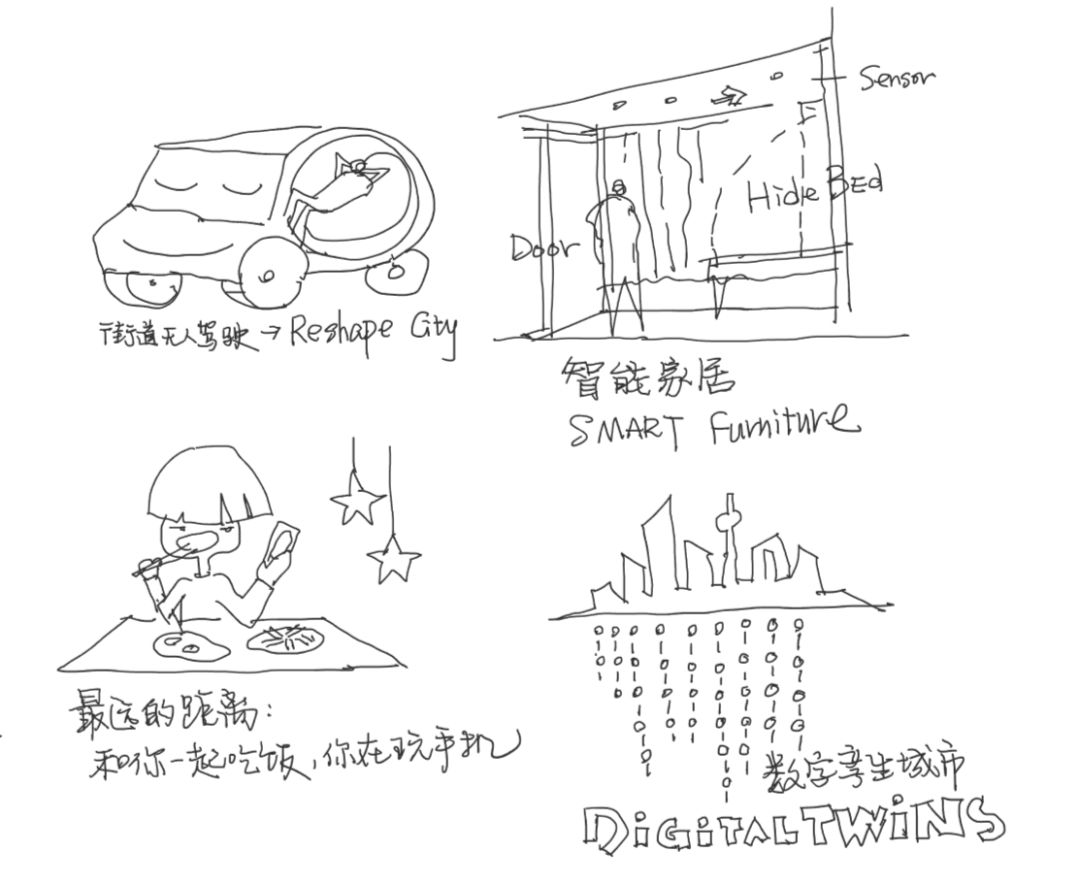 街道无人驾驶→Reshape City
Sensor
Hide Bed
Door
智能家居
SMART Furniture
最远的距离：
和你一起吃饭，你在玩手机
数字孪生城市
DiGiTALTWiNS